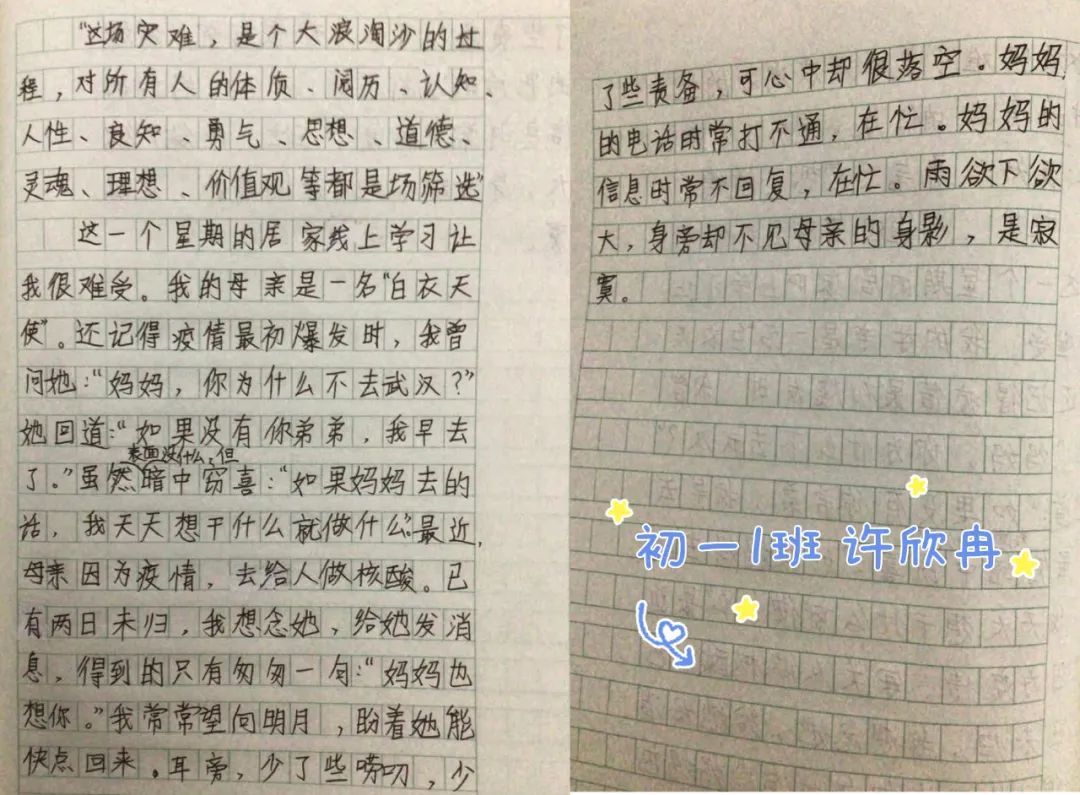 “这场灾难，是个大浪淘沙的过
程，对所有人的体质、阅历、认知、
人性、良知、勇气、思想、道德、
灵魂、理想、价值观等都是场筛选”
这一个星期的居家线上学习让
我很难受。我的母亲是一名“白衣天
使”。还记得疫情最初爆发时，我曾
问她：“妈妈，你为什么不去武汉？”
她回道：“如果没有你弟弟，我早去
表面没什么，但
了。”虽然暗中窃喜：“如果妈妈去的
话，我天天想干什么就做什么”最近，
母亲因为疫情，去给人做核酸。已
有两日未归，我想念她，给她发消
息，得到的只有匆匆一句：“妈妈也
想你。”我常常望向明月，盼着她能
快点回来。耳旁，少了些唠叨，少
了些责备，可心中却很落空。妈妈
的电话时常打不通，在忙。妈妈的
信息时常不回复，在忙。雨欲下欲
大，身旁却不见母亲的身影，是寂
寞。
初一1班 许欣冉